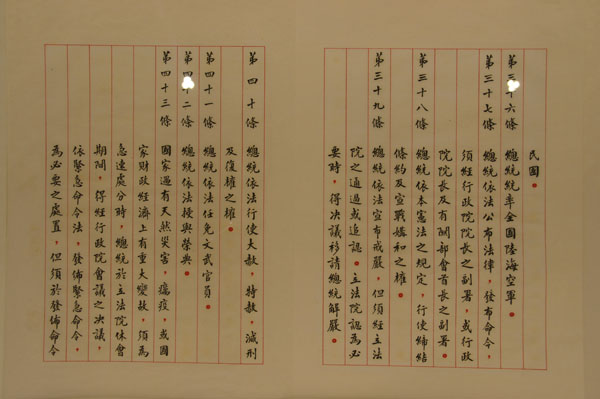 民國。
第三十六條 總統統率全國陸海空軍。
第三十七條 總統依法公布法律，發布命令，
須經行政院院長之副署，或行政
院院長及有關部會首長之副署。
第三十八條 總統依本憲法之規定，行使締結
條約及宣戰媾和之權。
第三十九條 總統依法宣布戒嚴，但須經立法
院之通過或追認。立法院認為必
要時，得決議移請總統解嚴。
第四十條 總統依法行使大赦，特赦，減刑
及復權之權。
第四十一條 總統依法任免文武官員。
第四十二條 總統依法授與榮典。
第四十三條 國家遇有天然災害，癘疫，或國
家財政經濟上有重大變故，須為
急速處分時，總統於立法院休會
期間，得經行政院會議之決議，
依緊急命令法，發佈緊急命令，
為必要之處置，但須於發佈命令